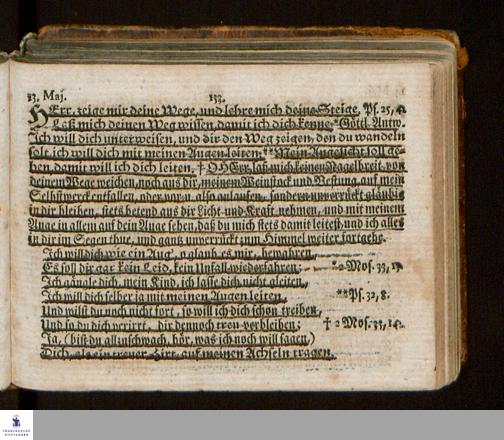 13. Maj. 133.
HErr, zeige mir deine Wege, und lehre mich deine Steige, Ps. 25, 4.
Laß mich deinen Weg wissen, damit ich dich kenne. *Göttl. Antw.
Ich will dich unterweisen, und dir den Weg zeigen, den du wandeln
solt, ich will dich mit meinen Augen leiten. **Mein Angesicht soll ge-
hen, damit will ich dich leiten. † HErr, laß mich keinen Nagelbreit von
deinem Wege weichen, noch aus dir, meinem Weinstock und Vestung, auf mein
Selbstwerck entfallen, oder nur also anlaufen, sondern unverrückt gläubig
in dir bleiben, stets betend aus dir Licht und Kraft nehmen, und mit meinem
Auge in allem auf dein Auge sehen, daß du mich stets damit leitest, und ich alles
in dir im Segen thue, und gantz unverrückt zum Himmel weiter fortgehe.
Ich will dich wie ein Aug', o glaub es mir, bewahren,
Es soll dir gar kein Leid, kein Unfall wiederfahren; *2 Mos. 33, 13.
Ich gängle dich, mein Kind, ich lasse dich nicht gleiten,
Ich will dich selber ja mit meinen Augen leiten, **Ps. 32, 8.
Und willst du noch nicht fort, so will ich dich schon treiben,
Und so du dich verirrt, dir dennoch treu verbleiben; † 2 Mos. 33, 14.
Ja, (bist du allzuschwach, hör, was ich noch will sagen,)
Dich, als ein treuer Hirt, auf meinen Achseln tragen.